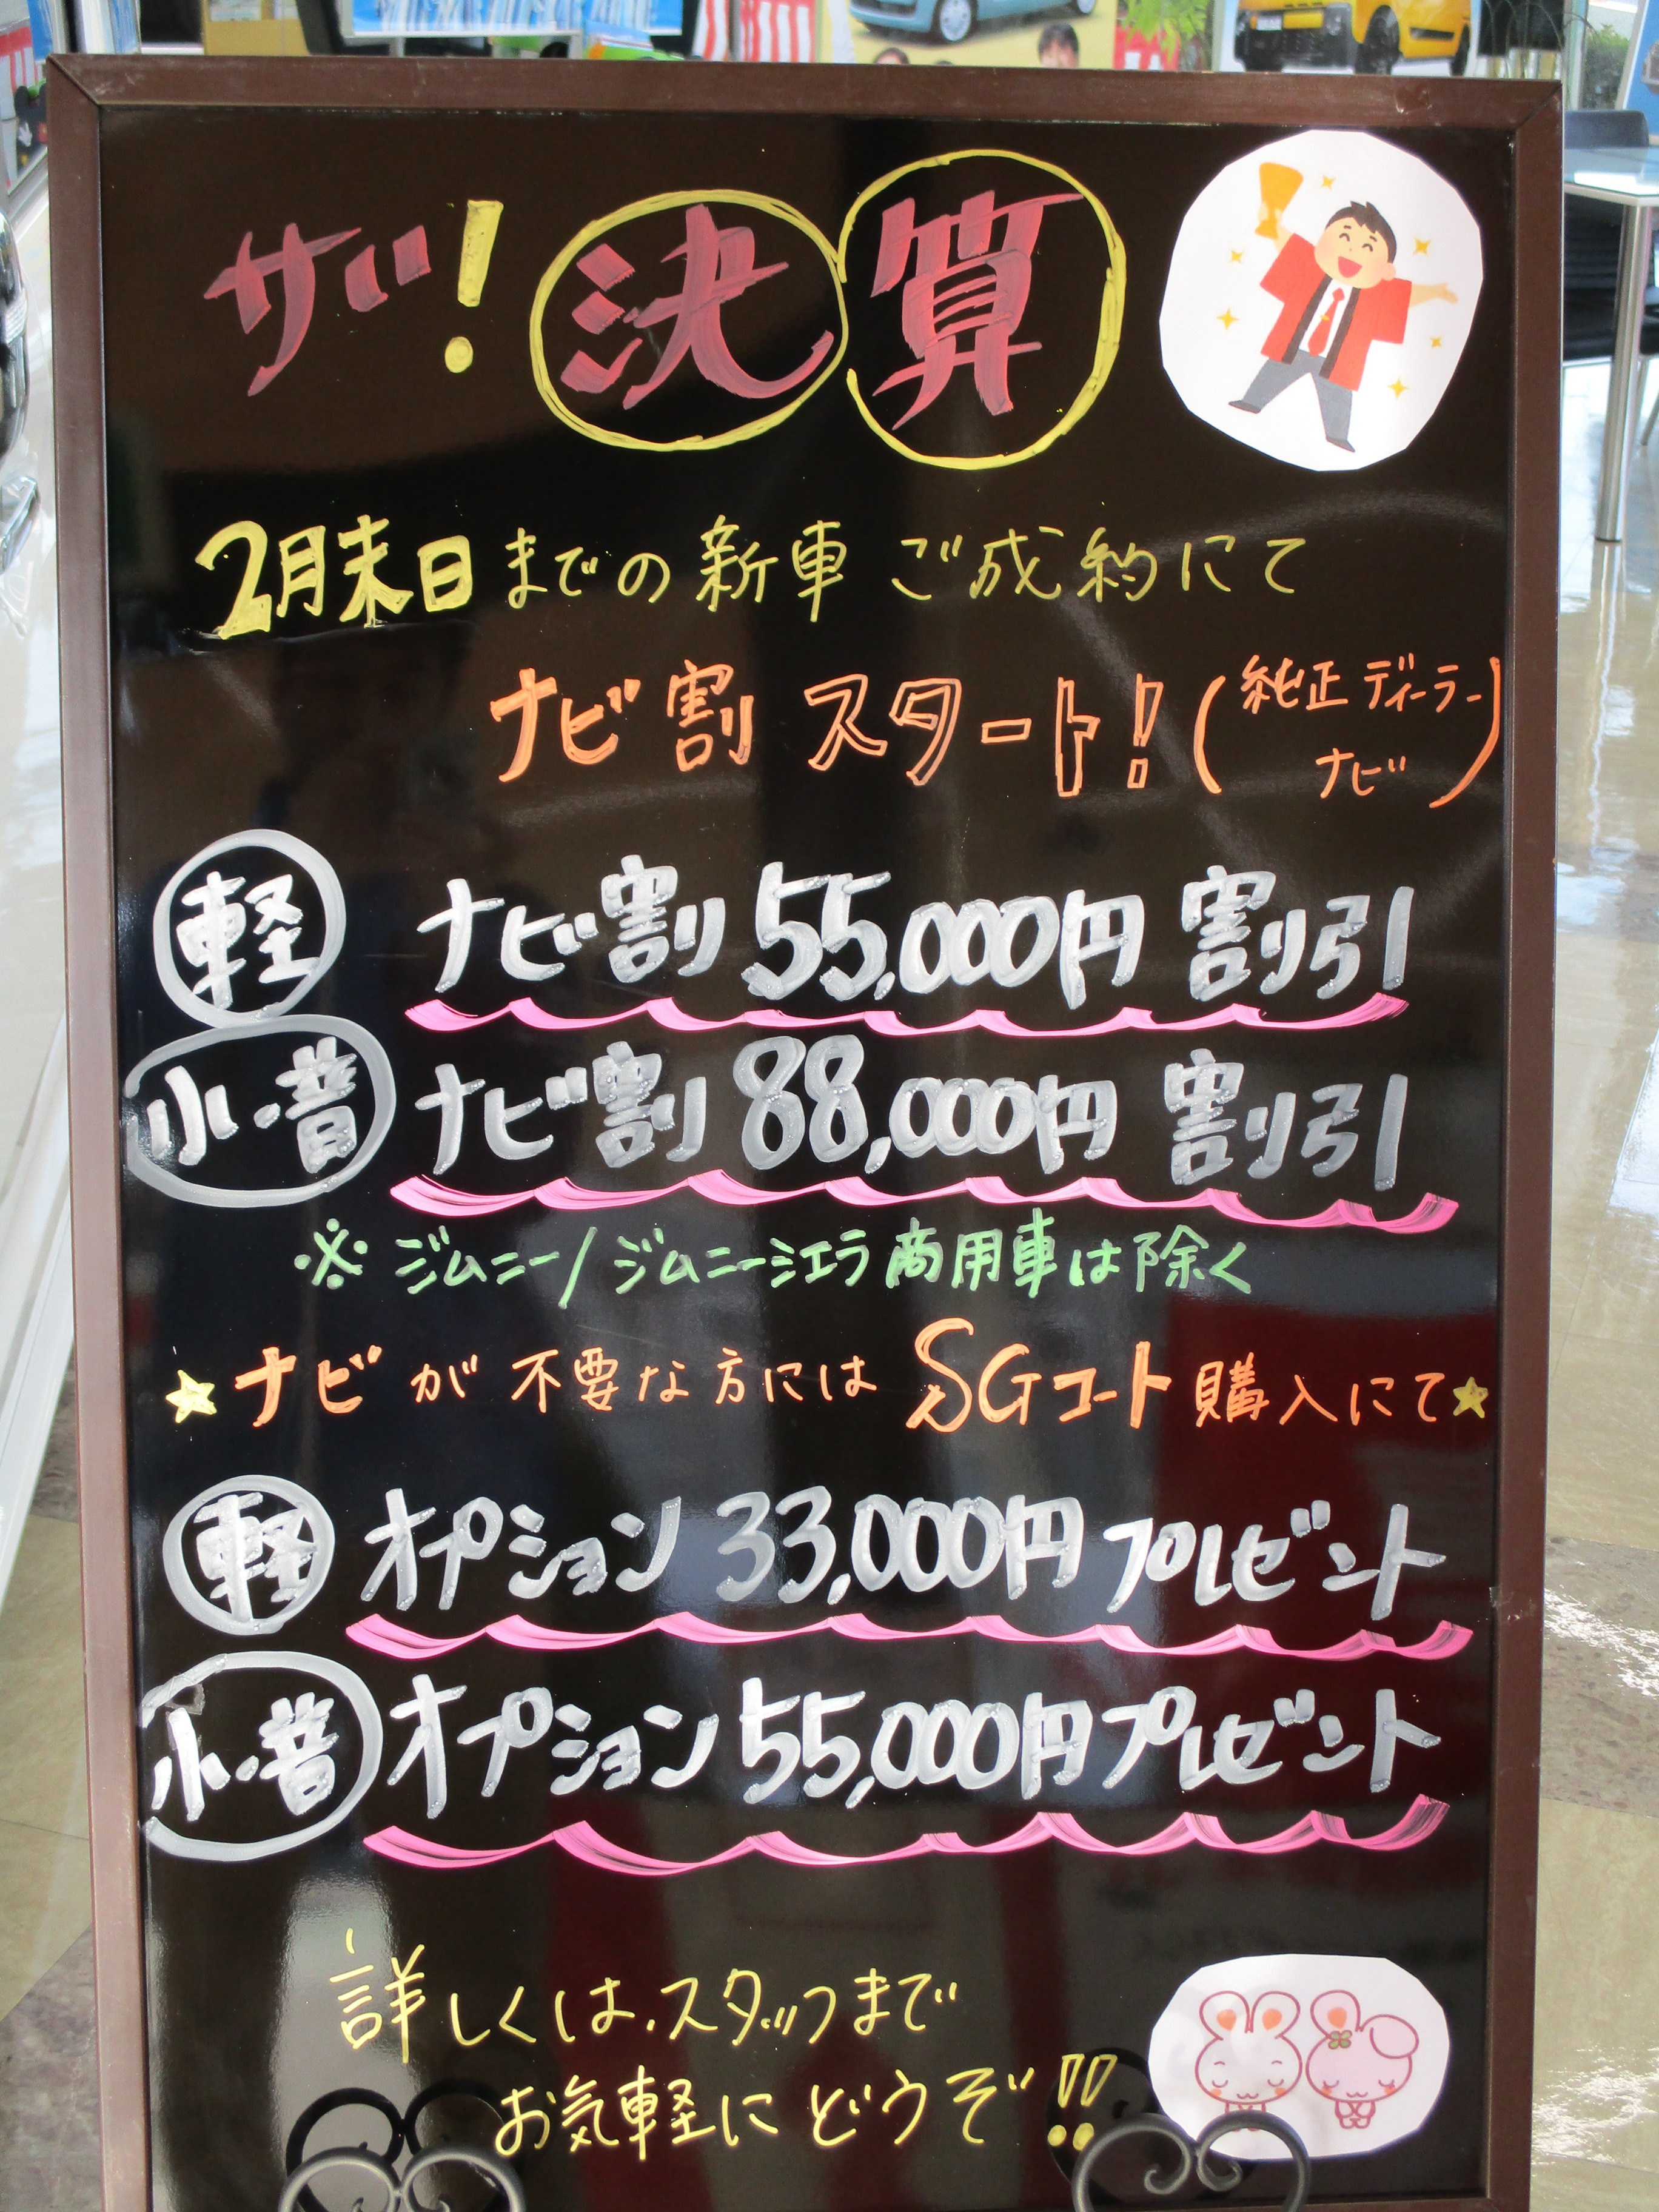 ザ!決算
2月末日までの新車ご成約にて
ナビ割スタート!(純正ディーラーナビ)
軽 ナビ割 55,000円 割引
小・普 ナビ割 88,000円 割引
※ジムニー/ジムニーシエラ 商用車は除く
★ナビが不要な方には SGコート購入にて★
軽 オプション 33,000円プレゼント
小・普 オプション 55,000円プレゼント
詳しくは、スタッフまで
お気軽にどうぞ!!